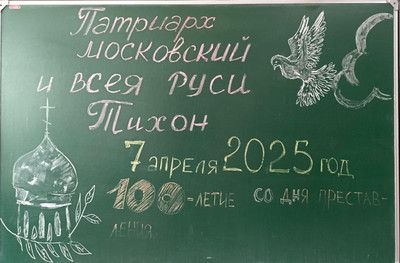 Патриарх
московский
и всея руси
Тихон
7 апреля 2025 год
100-летие со дня престав-
ления